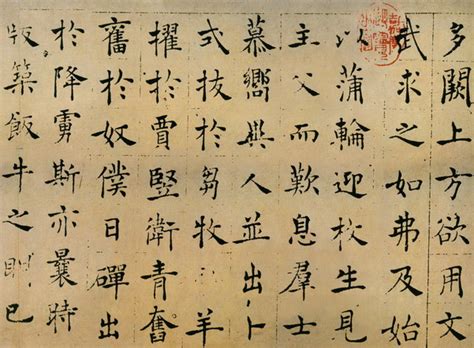 多闕上方欲用文
武求之如弗及始
以蒲輪迎枚生見
主父而歎息羣士
慕嚮異人並出卜
式拔於芻牧羊
擢於賈豎衛青奮
舊於奴僕日磾出
於降虜斯亦曩時
版築飯牛之朋已